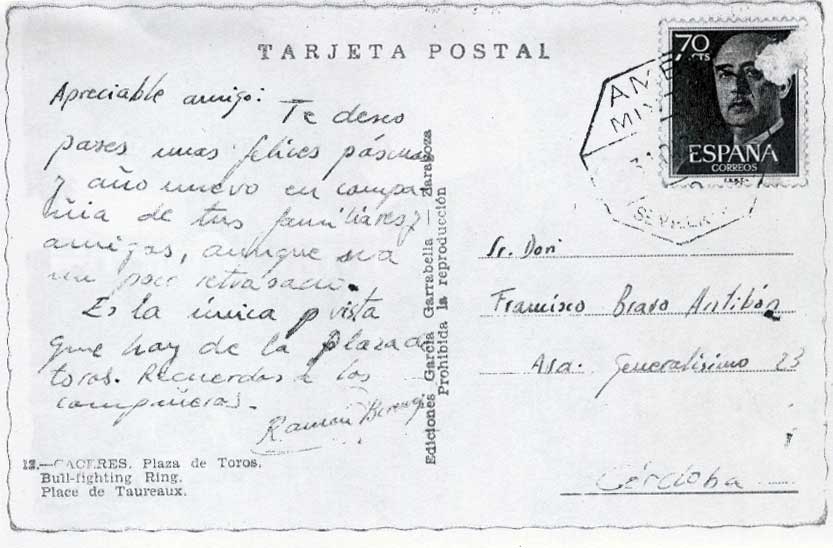 TARJETA POSTAL
Apreciable amigo: Te deseo
pases unas felices páscuas
y año nuevo en compa
ñia de tus familiares y
amigos, aunque sea
un poco retrasado.
Es la única vista
que hay de la plaza de
toros. Recuerdos a los
compañeros.
Ramón
12.—CACERES. Plaza de Toros.
Bull-fighting Ring.
Place de Taureaux.
Ediciones García Garrabella — Zaragoza
Prohibida la reproducción
70
CTS
ESPAÑA
CORREOS
F.N.M.T.
SEVILLA
Sr. Don
Francisco Bravo Antibón
Avda. Generalísimo 23
Córdoba